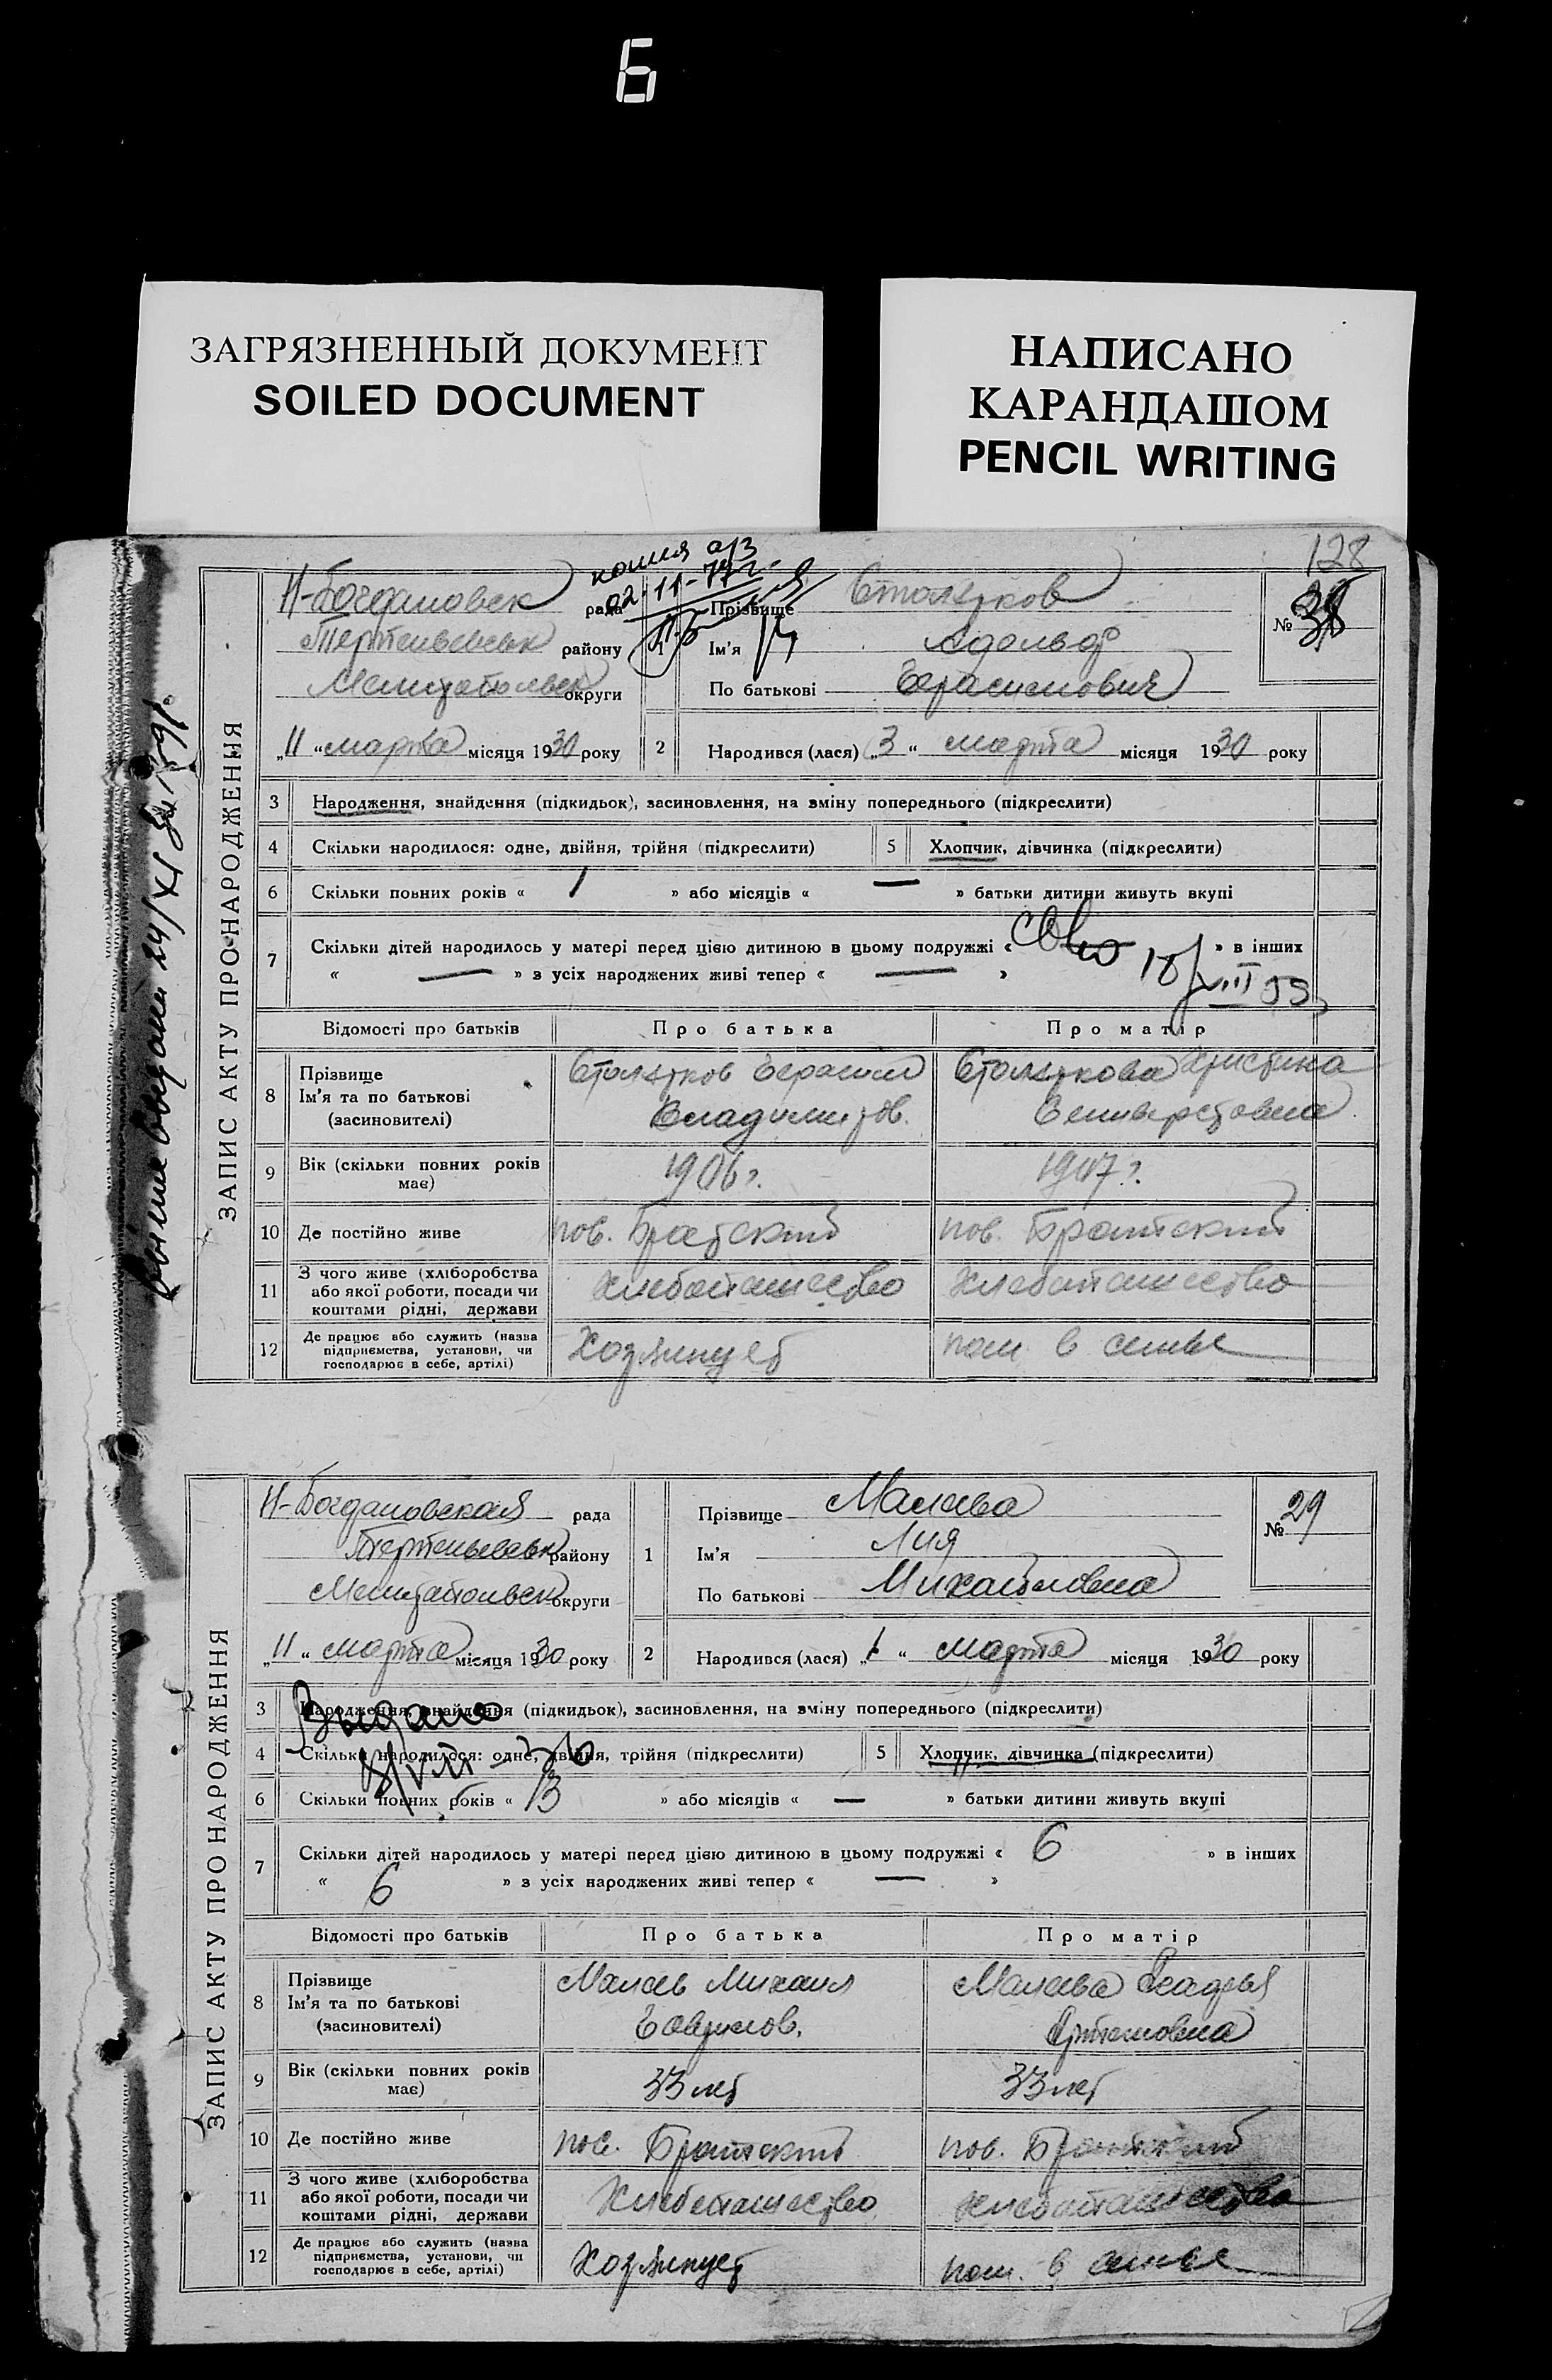 6
ЗАГРЯЗНЕННЫЙ ДОКУМЕНТ
SOILED DOCUMENT
НАПИСАНО
КАРАНДАШОМ
PENCIL WRITING
128
копия а/з
02-11-77 г.
ЗАПИС АКТУ ПРО НАРОДЖЕННЯ
Н-Богдановск рада
района району
Мелитопольск округи
„11“ марта місяця 1930 року
1 Прізвище Столяров
Ім'я Адольф
По батькові Герасимович
№ 28
2 Народився (лася) „3“ марта місяця 1930 року
3 Народження, знайдення (підкидьок), засиновлення, на зміну попереднього (підкреслити)
4 Скільки народилося: одне, двійня, трійня (підкреслити) 5 Хлопчик, дівчинка (підкреслити)
6 Скільки повних років « 1 » або місяців « — » батьки дитини живуть вкупі
7 Скільки дітей народилось у матері перед цією дитиною в цьому подружжі « » в інших
« — » з усіх народжених живі тепер « — »
Відомості про батьків Про батька Про матір
8 Прізвище
Ім'я та по батькові
(засиновителі)
Герасим
Владимиров.
Христина
Селиверстовна
9 Вік (скільки повних років має) 1906 г. 1907 г.
10 Де постійно живе пос. Братский пос. Братский
11 З чого живе (хліборобства
або якої роботи, посади чи
коштами рідні, держави
Хлебопашество Хлебопашество
12 Де працює або служить (назва
підприємства, установи, чи
господарює в себе, артілі)
Хозяинует пом. в семье
ЗАПИС АКТУ ПРО НАРОДЖЕННЯ
Н-Богдановская рада
району
Мелитопольск округи
„11“ марта місяця 1930 року
1 Прізвище Малева
Ім'я Лия
По батькові Михайловна
№ 29
2 Народився (лася) „1“ марта місяця 1930 року
3 Народження, знайдення (підкидьок), засиновлення, на зміну попереднього (підкреслити)
Выдано
4 Скільки народилося: одне, двійня, трійня (підкреслити) 5 Хлопчик, дівчинка (підкреслити)
6 Скільки повних років « 13 » або місяців « — » батьки дитини живуть вкупі
7 Скільки дітей народилось у матері перед цією дитиною в цьому подружжі « 6 » в інших
« 6 » з усіх народжених живі тепер « — »
Відомості про батьків Про батька Про матір
8 Прізвище
Ім'я та по батькові
(засиновителі)
Малев Михаил
Гаврилов.
Малева
Артемовна
9 Вік (скільки повних років має) 33 лет 33 лет
10 Де постійно живе пос. Братский пос. Братский
11 З чого живе (хліборобства
або якої роботи, посади чи
коштами рідні, держави
Хлебопашество Хлебопашество
12 Де працює або служить (назва
підприємства, установи, чи
господарює в себе, артілі)
Хозяинует пом. в семье